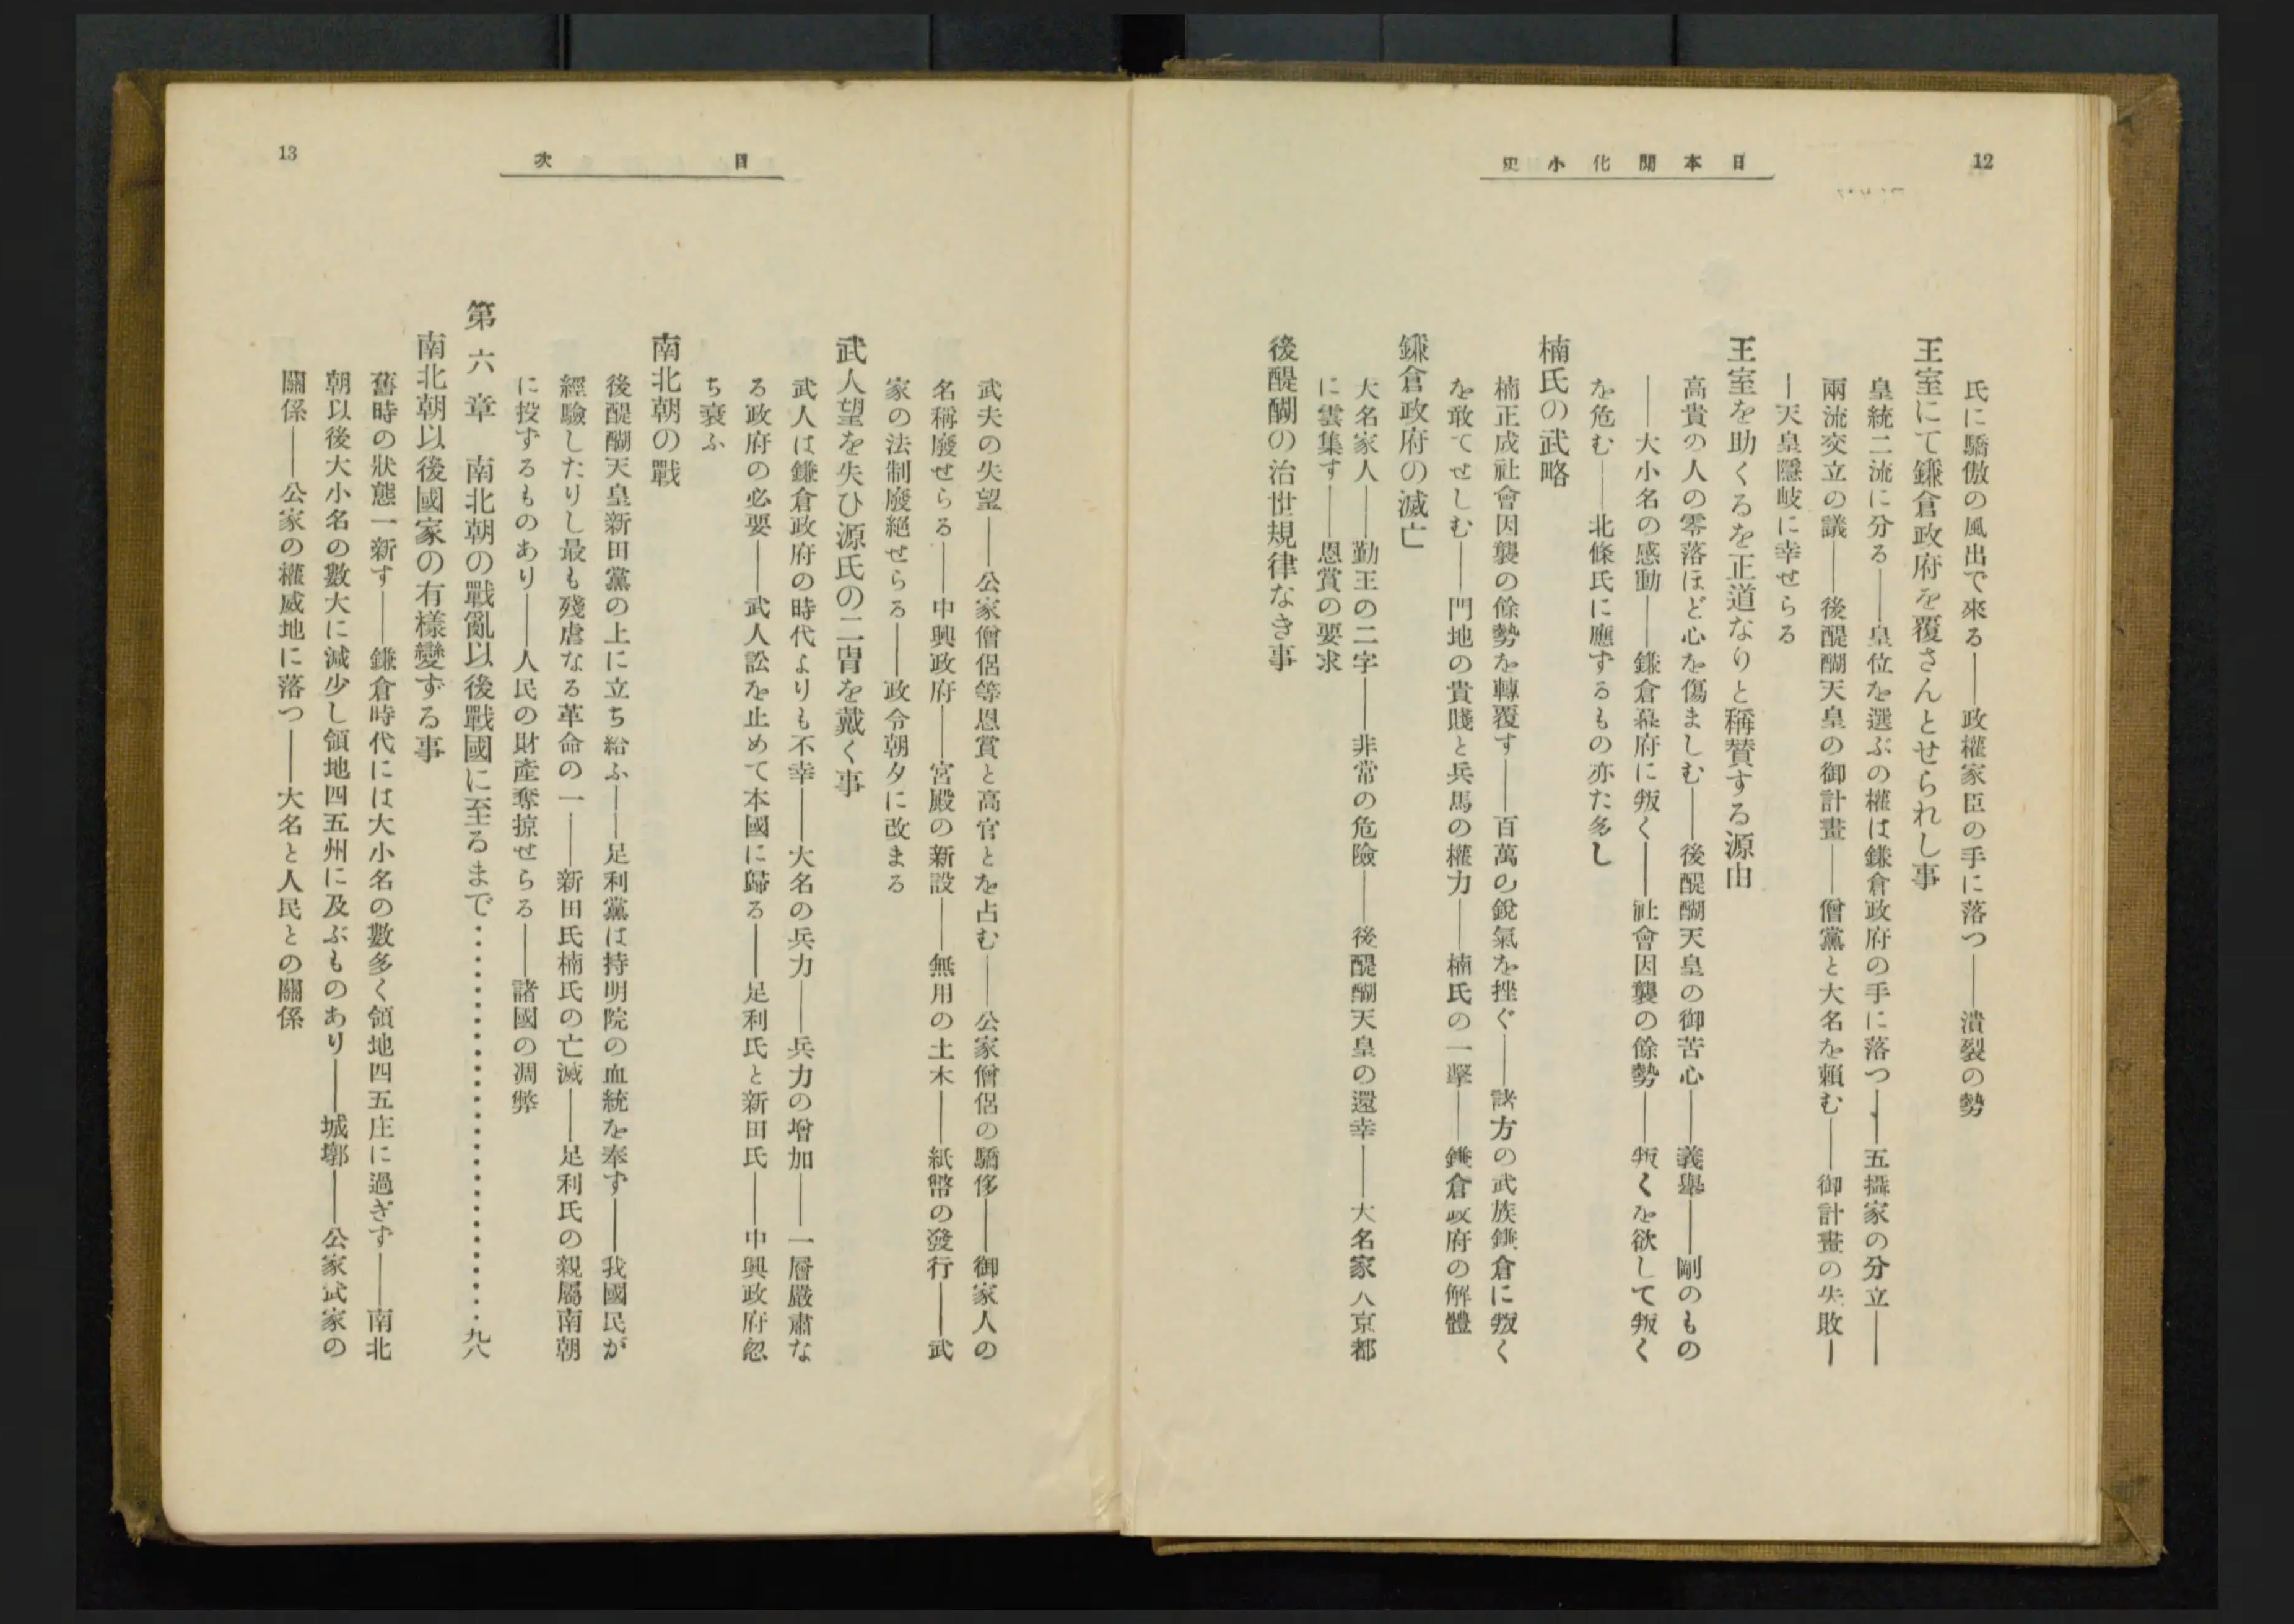 12
日本開化小史
氏に驕傲の風出で來る――政權家臣の手に落つ――潰裂の勢
王室にて鎌倉政府を覆さんとせられし事
皇統二流に分る――皇位を選ぶの權は鎌倉政府の手に落つ――五攝家の分立――
兩流交立の議――後醍醐天皇の御計畫――僧黨と大名を賴む――御計畫の失敗―
―天皇隱岐に幸せらる
王室を助くるを正道なりと稱賛する源由
高貴の人の零落ほど心を傷ましむ――後醍醐天皇の御苦心――義擧――剛のもの
――大小名の感動――鎌倉幕府に叛く――社會因襲の餘勢――叛くを欲して叛く
を危む――北條氏に應ずるもの亦た多し
楠氏の武略
楠正成社會因襲の餘勢を轉覆す――百萬の銳氣を挫ぐ――諸方の武族鎌倉に叛く
を敢てせしむ――門地の貴賤と兵馬の權力――楠氏の一擧――鎌倉政府の解體
鎌倉政府の滅亡
大名家人――勤王の二字――非常の危險――後醍醐天皇の還幸――大名家人京都
に雲集す――恩賞の要求
後醍醐の治世規律なき事
目次
13
武夫の失望――公家僧侶等恩賞と高官とを占む――公家僧侶の驕侈――御家人の
名稱廢せらる――中興政府――宮殿の新設――無用の土木――紙幣の發行――武
家の法制廢絕せらる――政令朝夕に改まる
武人望を失ひ源氏の二冑を戴く事
武人は鎌倉政府の時代よりも不幸――大名の兵力――兵力の增加――一層嚴肅な
る政府の必要――武人訟を止めて本國に歸る――足利氏と新田氏――中興政府忽
ち衰ふ
南北朝の戰
後醍醐天皇新田黨の上に立ち給ふ――足利黨は持明院の血統を奉ず――我國民が
經驗したりし最も殘虐なる革命の一――新田氏楠氏の亡滅――足利氏の親屬南朝
に投ずるものあり――人民の財產奪掠せらる――諸國の凋弊
第六章　南北朝の戰亂以後戰國に至るまで‥‥‥‥‥‥‥‥‥‥‥‥‥‥九八
南北朝以後國家の有樣變ずる事
舊時の狀態一新す――鎌倉時代には大小名の數多く領地四五庄に過ぎず――南北
朝以後大小名の數大に減少し領地四五州に及ぶものあり――城墎――公家武家の
關係――公家の權威地に落つ――大名と人民との關係